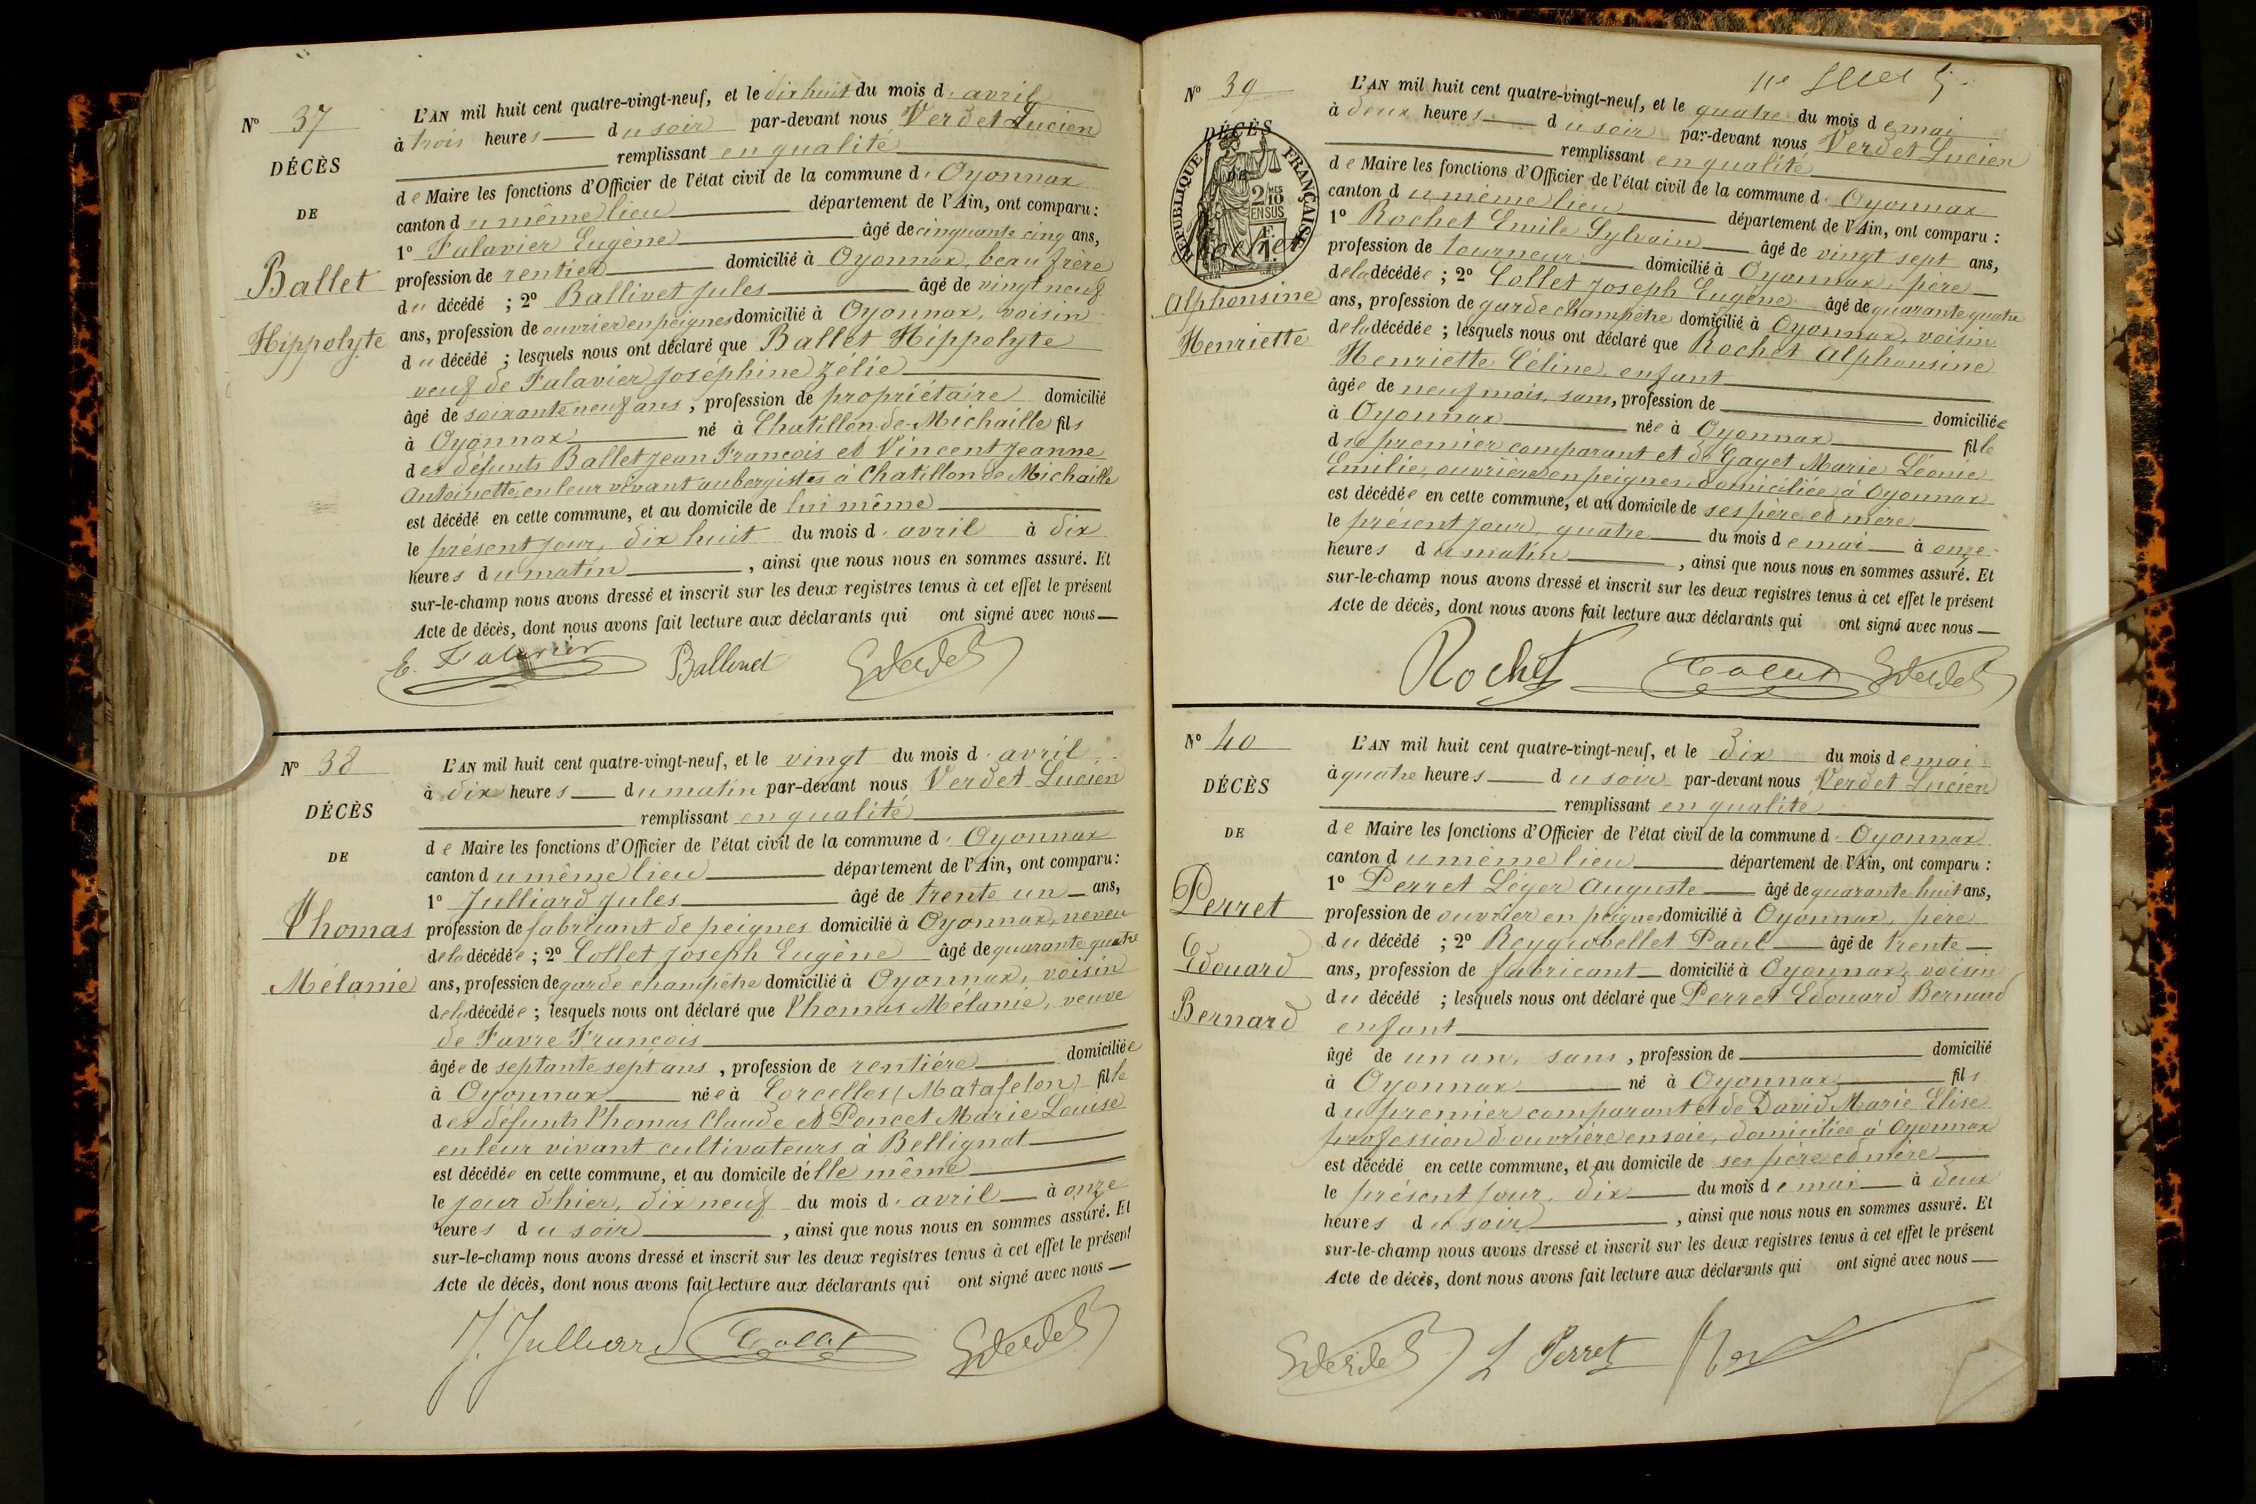 N° 37
DÉCÈS
DE
Ballet
Hippolyte
L'AN mil huit cent quatre-vingt-neuf, et le dix huit du mois d'avril
à trois heures du soir par-devant nous Verdet Lucien
remplissant en qualité
de Maire les fonctions d'Officier de l'état civil de la commune d'Oyonnax
canton du même lieu département de l'Ain, ont comparu :
1° Falavier Eugène âgé de cinquante cinq ans,
profession de rentier domicilié à Oyonnax, beau frère
du décédé ; 2° Ballivet Jules âgé de vingt neuf
ans, profession de ouvrier en peignes domicilié à Oyonnax, voisin
du décédé ; lesquels nous ont déclaré que Ballet Hippolyte
veuf de Falavier Josephine Zélie
âgé de soixante neuf ans, profession de propriétaire domicilié
à Oyonnax né à Chatillon-de-Michaille fils
des défunts Ballet Jean François et Vincent Jeanne
Antoinette, en leur vivant aubergistes à Chatillon de Michaille
est décédé en cette commune, et au domicile de lui même
le présent jour, dix huit du mois d'avril à dix
heures du matin, ainsi que nous nous en sommes assuré. Et
sur-le-champ nous avons dressé et inscrit sur les deux registres tenus à cet effet le présent
Acte de décès, dont nous avons fait lecture aux déclarants qui ont signé avec nous
E. Falavier Ballivet Verdet
N° 38
DÉCÈS
DE
Thomas
Mélanie
L'AN mil huit cent quatre-vingt-neuf, et le vingt du mois d'avril
à dix heures du matin par-devant nous Verdet Lucien
remplissant en qualité
de Maire les fonctions d'Officier de l'état civil de la commune d'Oyonnax
canton du même lieu département de l'Ain, ont comparu :
1° Julliard Jules âgé de trente un ans,
profession de fabricant de peignes domicilié à Oyonnax, neveu
de la décédée ; 2° Collet Joseph Eugène âgé de quarante quatre
ans, profession de garde champêtre domicilié à Oyonnax, voisin
de la décédée ; lesquels nous ont déclaré que Thomas Mélanie, veuve
de Favre François
âgée de septante sept ans, profession de rentière domiciliée
à Oyonnax née à Corcelles (Matafelon) fille
des défunts Thomas Claude et Poncet Marie Louise
en leur vivant cultivateurs à Bellignat
est décédée en cette commune, et au domicile d'elle même
le jour d'hier, dix neuf du mois d'avril à onze
heures du soir, ainsi que nous nous en sommes assuré. Et
sur-le-champ nous avons dressé et inscrit sur les deux registres tenus à cet effet le présent
Acte de décès, dont nous avons fait lecture aux déclarants qui ont signé avec nous
J. Julliard Collet Verdet
N° 39
DÉCÈS
DE
RÉPUBLIQUE FRANÇAISE
2/10 EN SUS
Rochet
Alphonsine
Henriette
L'AN mil huit cent quatre-vingt-neuf, et le quatre du mois de mai
à deux heures du soir par-devant nous Verdet Lucien
remplissant en qualité
de Maire les fonctions d'Officier de l'état civil de la commune d'Oyonnax
canton du même lieu département de l'Ain, ont comparu :
1° Rochet Emile Sylvain âgé de vingt sept ans,
profession de tourneur domicilié à Oyonnax, père
de la décédée ; 2° Collet Joseph Eugène âgé de quarante quatre
ans, profession de garde champêtre domicilié à Oyonnax, voisin
de la décédée ; lesquels nous ont déclaré que Rochet Alphonsine
Henriette Céline, enfant
âgée de neuf mois, sans, profession de domiciliée
à Oyonnax née à Oyonnax fille
du premier comparant et de Gayet Marie Léonie
Emilie, ouvrière en peignes, domiciliée à Oyonnax
est décédée en cette commune, et au domicile de ses père et mère
le présent jour, quatre du mois de mai à onze
heures du matin, ainsi que nous nous en sommes assuré. Et
sur-le-champ nous avons dressé et inscrit sur les deux registres tenus à cet effet le présent
Acte de décès, dont nous avons fait lecture aux déclarants qui ont signé avec nous
Rochet Collet Verdet
N° 40
DÉCÈS
DE
Perret
Edouard
Bernard
L'AN mil huit cent quatre-vingt-neuf, et le dix du mois de mai
à quatre heures du soir par-devant nous Verdet Lucien
remplissant en qualité
de Maire les fonctions d'Officier de l'état civil de la commune d'Oyonnax
canton du même lieu département de l'Ain, ont comparu :
1° Perret Léger Auguste âgé de quarante huit ans,
profession de ouvrier en peignes domicilié à Oyonnax, père
du décédé ; 2° Reygrobellet Paul âgé de trente
ans, profession de fabricant domicilié à Oyonnax, voisin
du décédé ; lesquels nous ont déclaré que Perret Edouard Bernard
enfant
âgé de un an, sans, profession de domicilié
à Oyonnax né à Oyonnax fils
du premier comparant et de David Marie Elise
profession d'ouvrière en soie, domiciliée à Oyonnax
est décédé en cette commune, et au domicile de ses père et mère
le présent jour, dix du mois de mai à deux
heures du soir, ainsi que nous nous en sommes assuré. Et
sur-le-champ nous avons dressé et inscrit sur les deux registres tenus à cet effet le présent
Acte de décès, dont nous avons fait lecture aux déclarants qui ont signé avec nous
Verdet L Perret